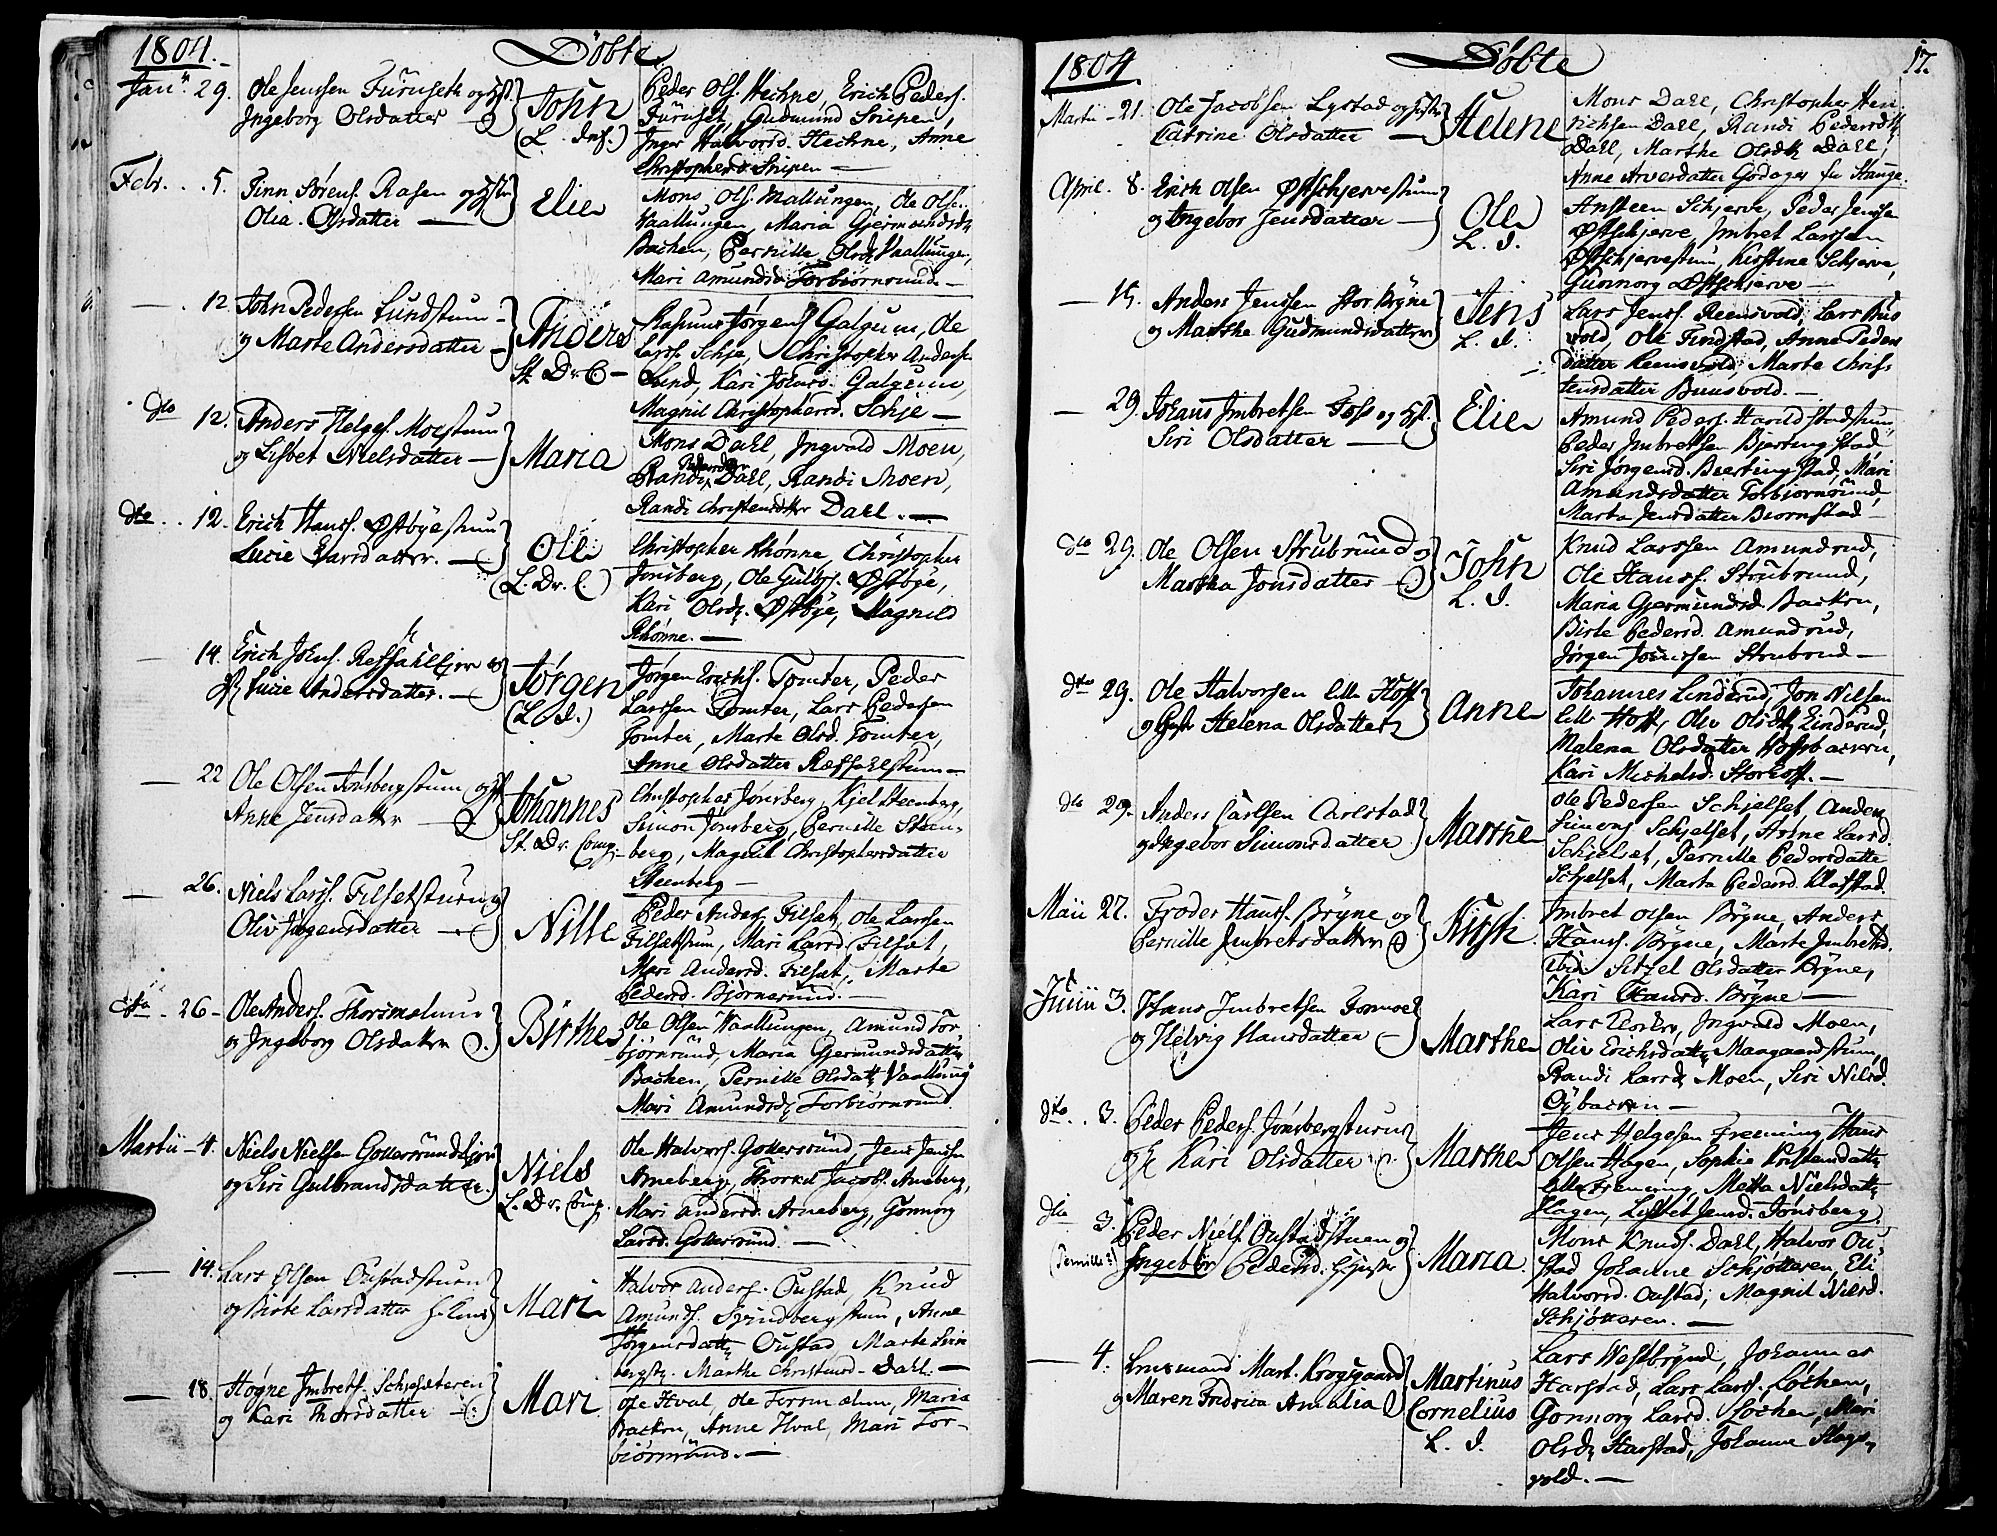 1804.
Døbte
Jan. 29. Ole Jenssen Furuseth og Hst.
Ingeborg Olsdatter
John
(L. Inf.)
Peder Ols. Hechne, Erich Peders.
Furuset, Gudmund Snipen,
Inger Halvorsd. Hechne, Anne
Christophersd. Snipen —
Febr. 5. Finn Sørens. Rasen og Hstr
Olea Olsdatter —
Elie
Mons Ols. Mallungen, Ole Olsen
Vaallungen, Maria Gjermundsdr
Bachen, Pernille Olsd. Vaallungen,
Mari Amundsd. Torbiørnsrund —
— 12. John Pedersen Lundstuen
og Marte Andersdatter —
Anders
St. Dr. C —
Rasmus Jørgens. Galgum, Ole
Larss. Schje, Christopher Anders.
Lund, Kari Johansd. Galgum,
Magnil Christophersd. Schje —
dto 12. Anders Helges. Moestuen
og Lisbet Nielsdatter —
Maria
Mons Dahl, Ingvald Moen,
Randi Pedersdtter Dahl, Randi Moen,
Randi Christensdtter Dahl. —
dto .. 12. Erich Hanss. Østbyestuen
Lucie Larsdatter. —
Ole
(L. Dr. C)
Christopher Rhønne, Christopher
Jønsberg, Ole Gulbr. Østbye,
Kari Olsd. Østbye, Magnild
Rhønne. —
— 14. Erich Johns. Refsahlejer og
H. Lucie Andersdatter. —
Jørgen
(L. I.)
Jørgen Erichs. Tomter, Peder
Larssen Tomter, Lars Pedersen
Tomter, Marte Olsd. Tomter,
Anne Olsdatter Ræfsahlstuen —
— 22 Ole Olsen Jønsbergstuen og H.
Anne Jensdatter —
Johannes
St. Dr. Comp.
Christopher Jønsberg, Kjel Steenberg,
Simon Jønsberg, Pernille Steen-
berg, Magnil Christophersdatter
Steenberg —
— 26. Niels Larss. Filsetstuen og
Oliv Jørgensdatter —
Nille
Peder Anders. Filset, Ole Larssen
Filsetstuen, Mari Larsd. Filset,
Mari Andersd. Filset, Marte
Pedersd. Bjørnerund. —
dto .. 26 — Ole Anders. Thorsmoeluen
og Ingeborg Olsdatter
Birthe
Ole Olsen Vaallungen, Amund Tor-
bjørnrund, Maria Gjermundsdatter
Bachen, Pernille Olsdatr. Vaallung,
Mari Amundsd. Torbiørnrund.
Martii — 4. Niels Nielsen Gottersrundejer
og Siri Gulbrandsdatter.
Niels
L. Dr. Comp.
Ole Halvors. Gottersrund, Jens Jenssen
Arneberg, Thorkel Jacobs. Arneberg,
Mari Andersd. Arneberg, Gonnorg
Larsd. Gottersrund. —
— 14. Lars Olsen Oustadstuen
og Birte Larsdatter
Mari
Halvor Anders. Oustad, Knud
Amunds. Svindbergstuen, Anne
Jørgensdatr. Oustad, Marte Svin
bergst., Marthe Christensd. Dahl. —
— 18. Høgne Imbrets. Schjeseteren
og Kari Thorsdatter —
Mari
Ole Hval, Ole Torsmoelun, Maria
Bachen, Anne Hval, Mari Tor-
biørnrund. —
1804.
Døbte
17.
Martii — 21. Ole Jacobsen Lystad og Hstr
Catrine Olsdatter —
Helene
Mons Dahl, Christopher Hen
richsen Dahl, Randi Pedersdtr
Dahl, Marthe Olsdtr Dahl,
Anne Arvesdatter Godager fra Stange.
April. 8. Erich Olsen Østschjervestuen
og Ingebor Jensdatter —
Ole
L. I.
Ansteen Schjerve, Peder Jenssen
Østschjerve, Imbret Larssen
Østschjervestuen, Kirstine Schjerve,
Gunnorg Østschjerve —
— 15. Anders Jenssen Stor Bryne
og Marthe Gudmundsdatter
Jens
L. I.
Lars Jenss. Reensvold, Lars Bus
vold, Ole Findstad, Anne Peders
datter Reensvold, Marte Chris
tensdatter Buusvold. —
— 29. Johans Imbretsen Foss og Hst.
Siri Olsdatter —
Elie
Amund Peders. Harildstadstuen,
Peder Imbretsen Bjertingstad,
Siri Jørgensd. Beertingstad, Mari
Amundsdatter Torbiørnsrund,
Marta Jensdatter Biornstad —
dto 29. Ole Olsen Strubrund og
Martha Jonsdatter —
John
L. I.
Knud Larssen Amundrud,
Ole Hanss. Strubrund,
Maria Gjermundsd. Bachen,
Birte Pedersd. Amundrud,
Jørgen Jonssen Strubrud —
dto 29. Ole Halvorsen Lille Hoff
og Hst. Helena Olsdatter
Anne
Johannes Linderud, Jon Nilsen
Lille Hoff, Oliv Olsdtr Linderud,
Malena Olsdatter Hofsbachen,
Kari Michelsd. Storhoff. —
dto 29. Anders Carlsen Carlstad
og Ingebor Simonsdatter
Marthe
Ole Pedersen Schjelset, Anders
Simons. Schjelset, Anne Larsd.
Schjelset, Pernille Pedersdatter
Schjelset, Marta Pedersd. Klafstad.
Maii 27. Froder Hanss. Bryne og
Pernille Imbretsdatter
Kirst.
Imbret Olsen Bryne, Anders
Hanss. Bryne, Marte Imbretsd.
Ibid. Sitzel Olsdatter Bryne,
Kari Hansd. Bryne —
Junii 3. Hans Imbretsen Formoe
og Helvig Hansdatter —
Marthe
Lars Floeten, Ingvald Moen,
Oliv Erichsdatr. Maagaardstuen,
Randi Larsd. Moen, Siri Nilsd.
Oÿbachen —
dto .. 3. Peder Peders. Jønsbergstuen
og H. Kari Olsdatter
Marthe
Jens Helgesen Freening, Hans
Olsen Hagen, Sophie Christensdatr.
Lille Freening, Metta Nielsdatr.
Hagen, Lisbet Jensd. Jønsberg.
dto 3. Peder Niels. Oustadstuen og
(Pernille?) Ingebor Pedersd. Hustr
Maria
Mons Knuds. Dahl, Halvor Ou-
stad, Johanne Schjøtteren, Eli
Halvorsd. Oustad, Magnil Nielsd.
Schjøtteren. —
— 4. Lensmand Mart. Krogsgaard
og Maren Fredrica Amalia
Martinus
Cornelius
L. I.
Lars Westbrynd, Johannes
Harstad, Lars Larss. Løchen,
Gonnorg Larsd. Løchen, Mari
Olsd. Harstad, Johanne Slags-
vold. —